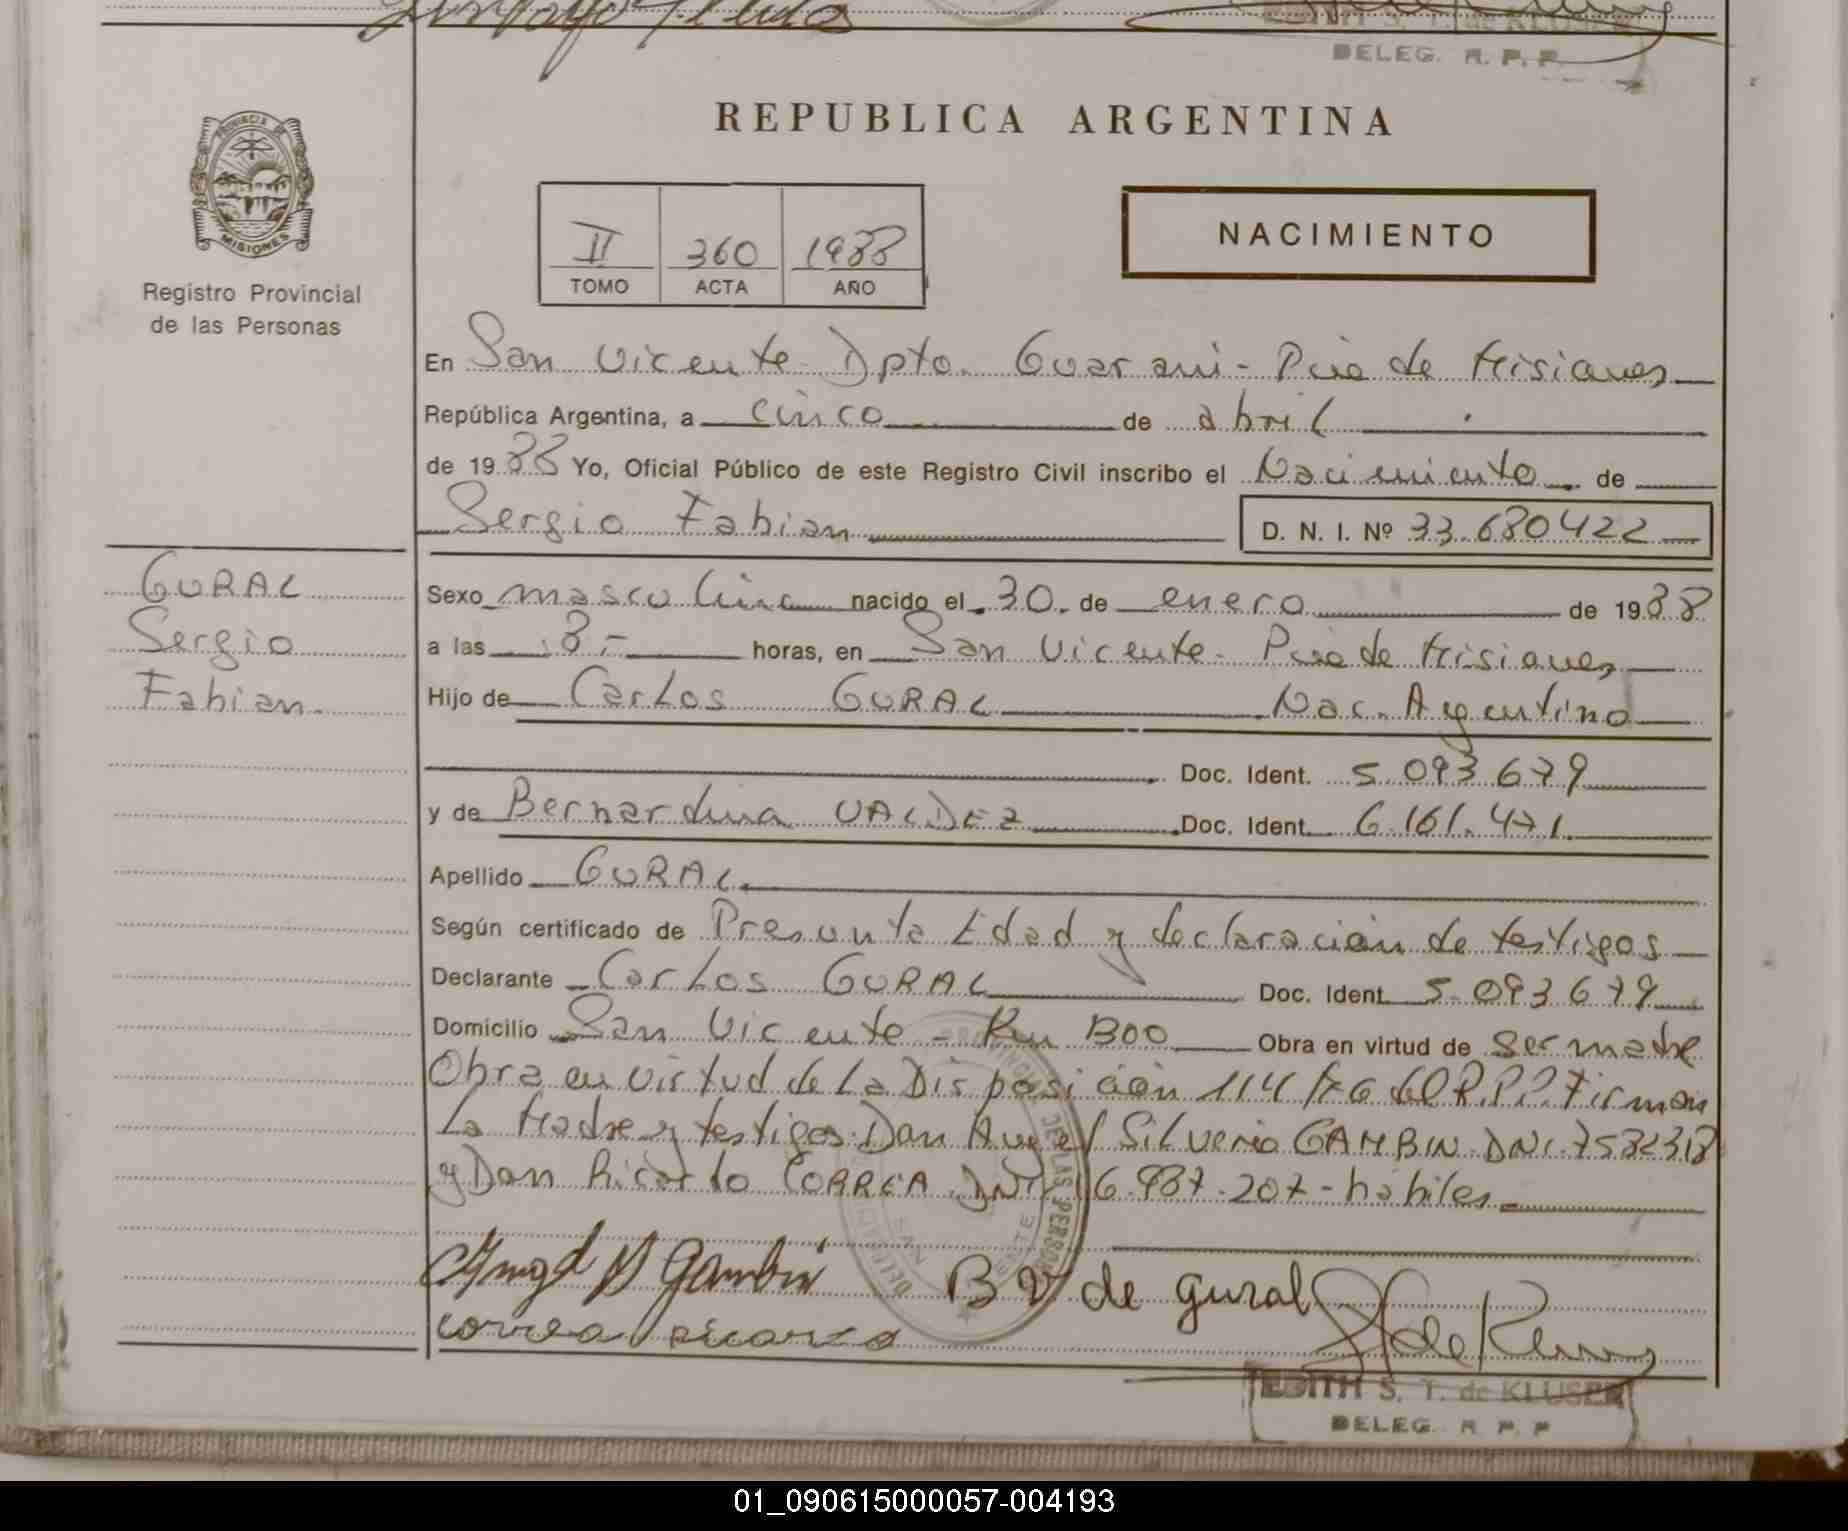 EDITH S. T. de KLUSER
DELEG. R. P. P.
PROVINCIA DE
MISIONES
Registro Provincial
de las Personas
REPUBLICA ARGENTINA
II 360 1988
TOMO ACTA AÑO
NACIMIENTO
En San Vicente Dpto. Guarani - Pcia de Misiones
República Argentina, a cinco de abril
de 1988 Yo, Oficial Público de este Registro Civil inscribo el Nacimiento de
Sergio Fabian D. N. I. Nº 33.680422
GURAL
Sergio
Fabian.
Sexo masculino nacido el 30. de enero de 1988
a las 8,- horas, en San Vicente - Pcia de Misiones
Hijo de Carlos GURAL Nac. Argentino
Doc. Ident. 5.093.679
y de Bernardina VALDEZ Doc. Ident. 6.161.471
Apellido GURAL
Según certificado de Presunta Edad y declaración de testigos
Declarante Carlos GURAL Doc. Ident. 5.093679
Domicilio San Vicente - Km 1300 Obra en virtud de ser madre
Obra en virtud de la Disposición 114/76 del R.P.P. Firman
la Madre y testigos Don Angel Silverio GAMBIN DNI. 7582318
y Don Ricardo CORREA DNI 16.987.207 - hábiles
Angel S Gambin B V de gural
correa ricardo
EDITH S. T. de KLUSER
DELEG. R. P. P
01_090615000057-004193